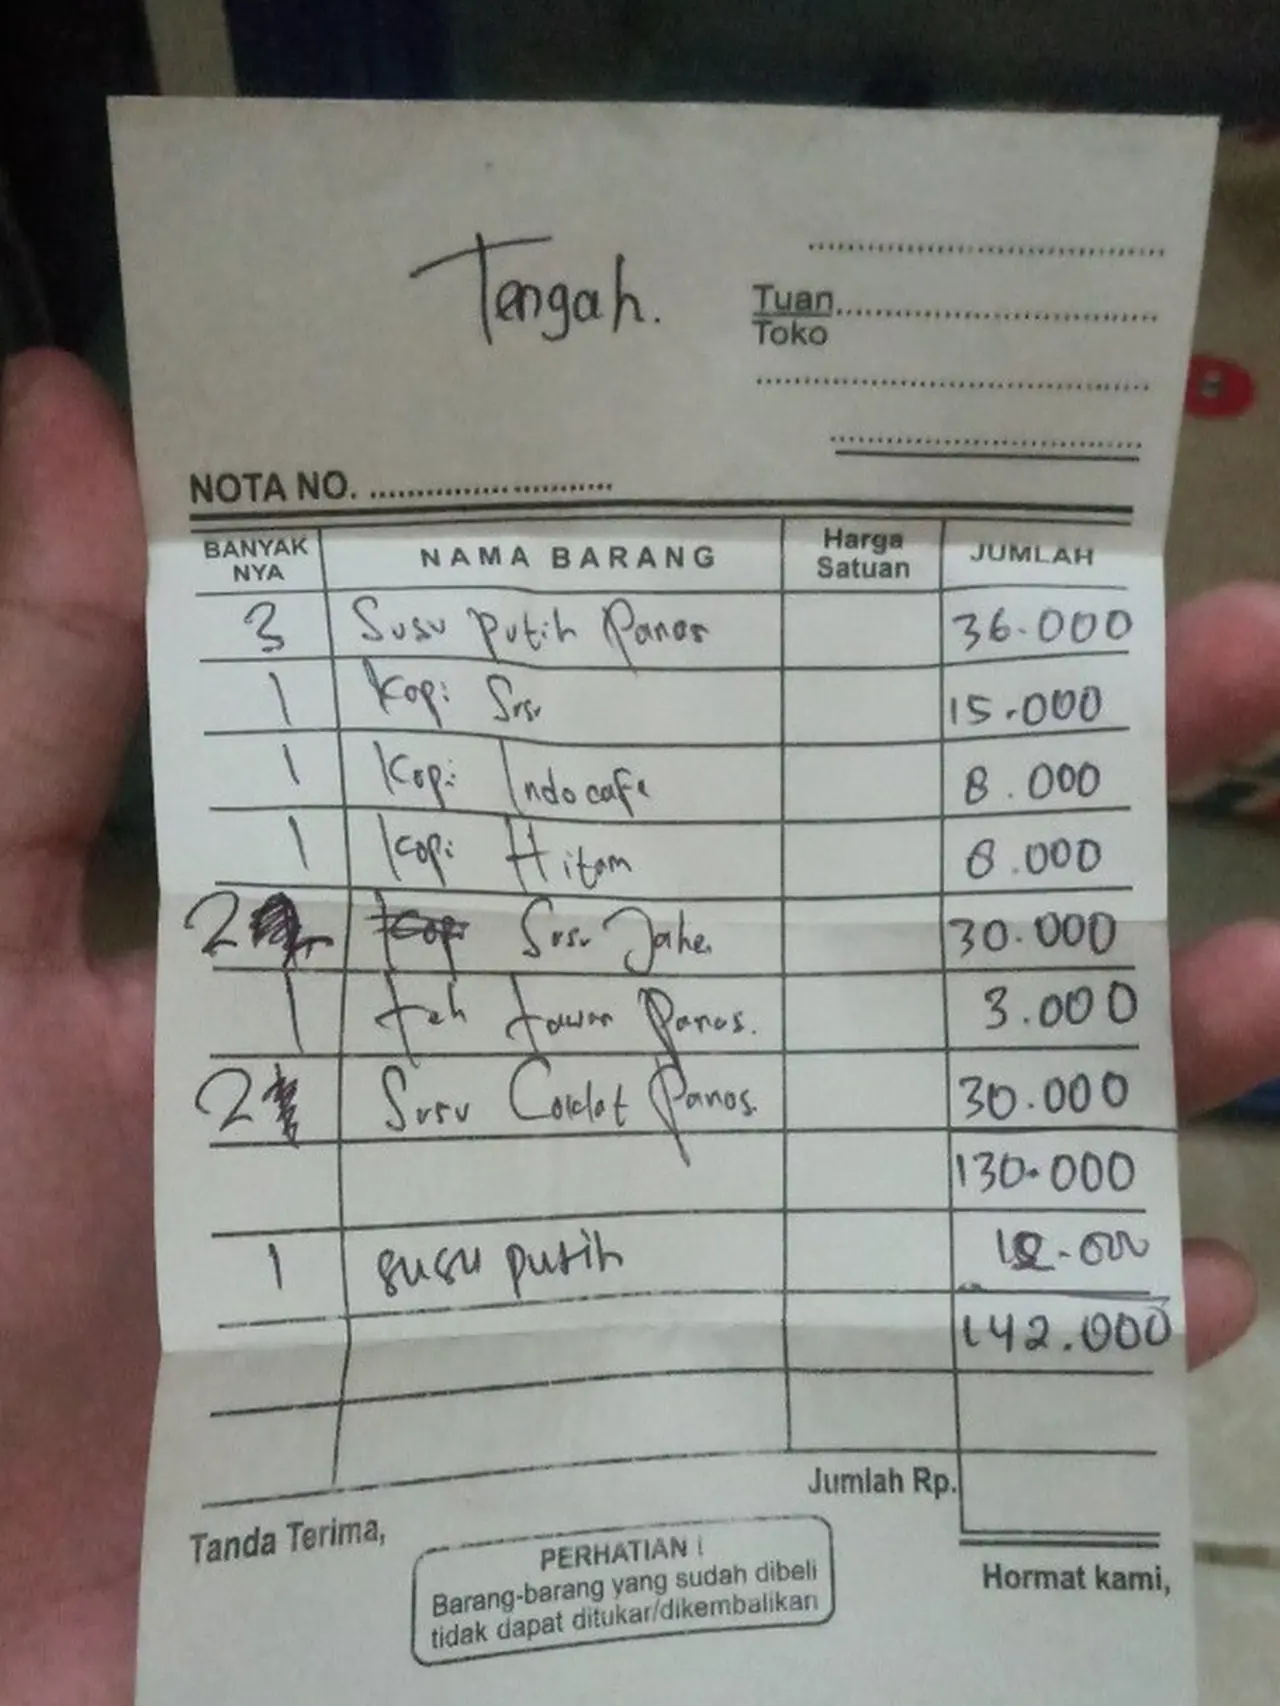 Tengah.
Tuan
Toko
NOTA NO.
BANYAK NYA NAMA BARANG Harga Satuan JUMLAH
3 Susu Putih Panas 36.000
1 Kopi Susu 15.000
1 Kopi Indocafe 8.000
1 Kopi Hitam 8.000
2 Kopi Susu Jahe 30.000
1 teh tawar Panas. 3.000
2 Susu Coklat Panas. 30.000
130.000
1 susu putih 12.000
142.000
Jumlah Rp.
Tanda Terima,
PERHATIAN !
Barang-barang yang sudah dibeli
tidak dapat ditukar/dikembalikan
Hormat kami,